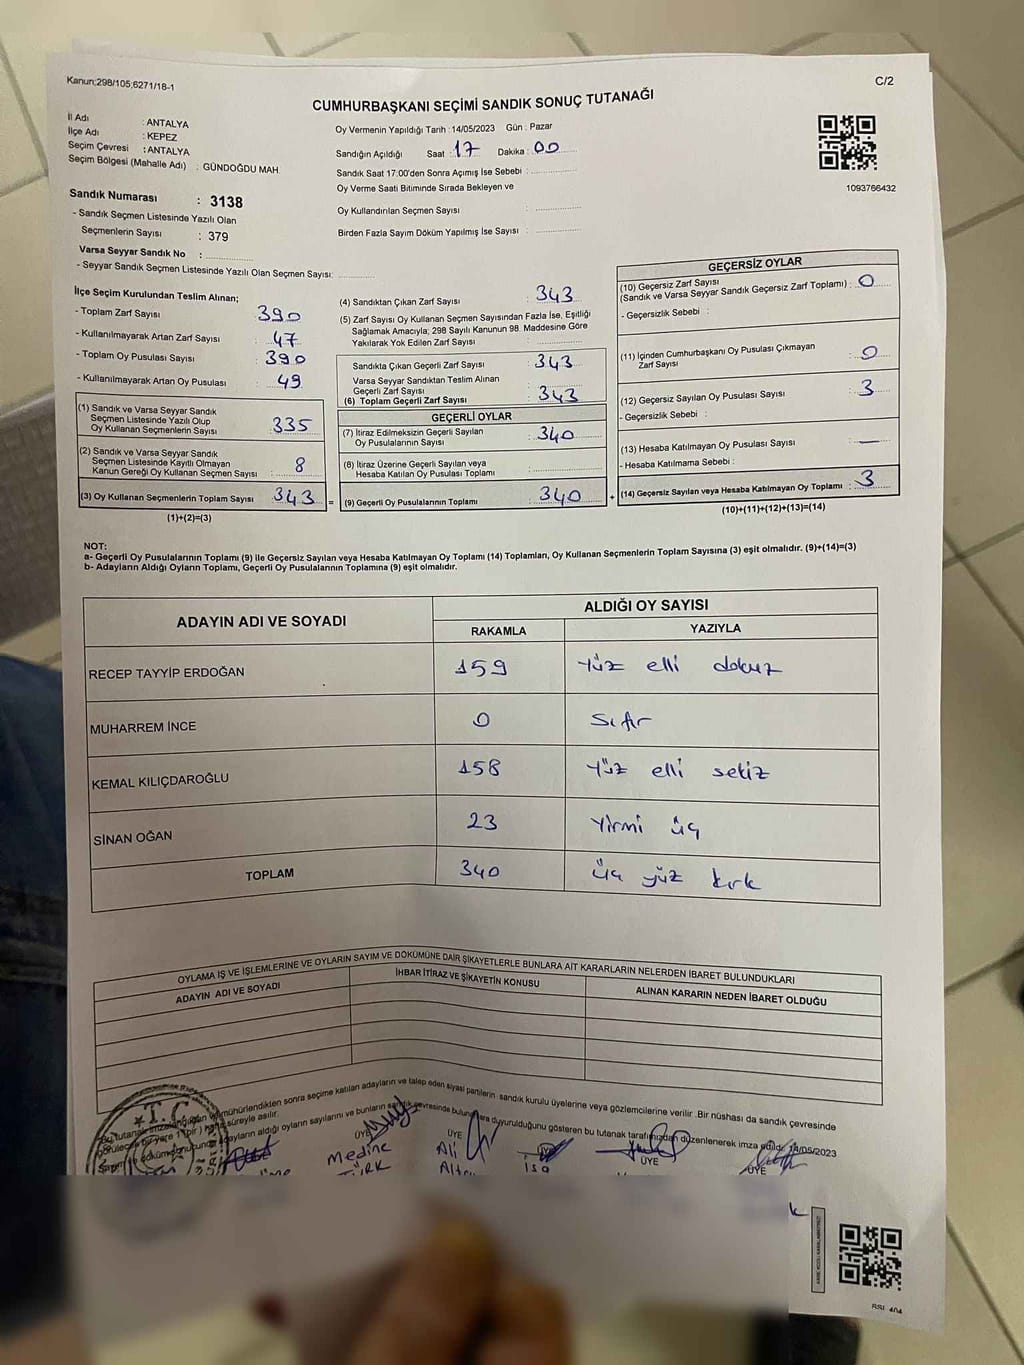 Kanun;298/105,6271/18-1
C/2
CUMHURBAŞKANI SEÇİMİ SANDIK SONUÇ TUTANAĞI
İl Adı : ANTALYA
İlçe Adı : KEPEZ
Seçim Çevresi : ANTALYA
Seçim Bölgesi (Mahalle Adı) : GÜNDOĞDU MAH.
Oy Vermenin Yapıldığı Tarih :14/05/2023 Gün : Pazar
Sandığın Açıldığı Saat : 17 Dakika : 00
Sandık Saat 17:00'den Sonra Açımış İse Sebebi :
Oy Verme Saati Bitiminde Sırada Bekleyen ve
Oy Kullandırılan Seçmen Sayısı :
Birden Fazla Sayım Döküm Yapılmış İse Sayısı :
1093766432
Sandık Numarası : 3138
- Sandık Seçmen Listesinde Yazılı Olan
Seçmenlerin Sayısı : 379
Varsa Seyyar Sandık No :
- Seyyar Sandık Seçmen Listesinde Yazılı Olan Seçmen Sayısı:
İlçe Seçim Kurulundan Teslim Alınan;
- Toplam Zarf Sayısı : 390
- Kullanılmayarak Artan Zarf Sayısı : 47
- Toplam Oy Pusulası Sayısı : 390
- Kullanılmayarak Artan Oy Pusulası : 49
(1) Sandık ve Varsa Seyyar Sandık
Seçmen Listesinde Yazılı Olup
Oy Kullanan Seçmenlerin Sayısı : 335
(2) Sandık ve Varsa Seyyar Sandık
Seçmen Listesinde Kayıtlı Olmayan
Kanun Gereği Oy Kullanan Seçmen Sayısı : 8
(3) Oy Kullanan Seçmenlerin Toplam Sayısı : 343
(1)+(2)=(3)
(4) Sandıktan Çıkan Zarf Sayısı : 343
(5) Zarf Sayısı Oy Kullanan Seçmen Sayısından Fazla İse, Eşitliği
Sağlamak Amacıyla; 298 Sayılı Kanunun 98. Maddesine Göre
Yakılarak Yok Edilen Zarf Sayısı :
Sandıkta Çıkan Geçerli Zarf Sayısı : 343
Varsa Seyyar Sandıktan Teslim Alınan
Geçerli Zarf Sayısı :
(6) Toplam Geçerli Zarf Sayısı : 343
GEÇERLİ OYLAR
(7) İtiraz Edilmeksizin Geçerli Sayılan
Oy Pusulalarının Sayısı : 340
(8) İtiraz Üzerine Geçerli Sayılan veya
Hesaba Katılan Oy Pusulası Toplamı :
= (9) Geçerli Oy Pusulalarının Toplamı : 340 +
GEÇERSİZ OYLAR
(10) Geçersiz Zarf Sayısı
(Sandık ve Varsa Seyyar Sandık Geçersiz Zarf Toplamı) : 0
- Geçersizlik Sebebi :
(11) İçinden Cumhurbaşkanı Oy Pusulası Çıkmayan
Zarf Sayısı : 0
(12) Geçersiz Sayılan Oy Pusulası Sayısı : 3
- Geçersizlik Sebebi :
(13) Hesaba Katılmayan Oy Pusulası Sayısı : —
- Hesaba Katılmama Sebebi :
(14) Geçersiz Sayılan veya Hesaba Katılmayan Oy Toplamı : 3
(10)+(11)+(12)+(13)=(14)
NOT:
a- Geçerli Oy Pusulalarının Toplamı (9) ile Geçersiz Sayılan veya Hesaba Katılmayan Oy Toplamı (14) Toplamları, Oy Kullanan Seçmenlerin Toplam Sayısına (3) eşit olmalıdır. (9)+(14)=(3)
b- Adayların Aldığı Oyların Toplamı, Geçerli Oy Pusulalarının Toplamına (9) eşit olmalıdır.
ADAYIN ADI VE SOYADI ALDIĞI OY SAYISI
RAKAMLA YAZIYLA
RECEP TAYYİP ERDOĞAN 159 Yüz elli dokuz
MUHARREM İNCE 0 Sıfır
KEMAL KILIÇDAROĞLU 158 Yüz elli sekiz
SİNAN OĞAN 23 Yirmi üç
TOPLAM 340 Üç yüz kırk
OYLAMA İŞ VE İŞLEMLERİNE VE OYLARIN SAYIM VE DÖKÜMÜNE DAİR ŞİKAYETLERLE BUNLARA AİT KARARLARIN NELERDEN İBARET BULUNDUKLARI
ADAYIN ADI VE SOYADI İHBAR İTİRAZ VE ŞİKAYETİN KONUSU ALINAN KARARIN NEDEN İBARET OLDUĞU
mühürlendikten sonra seçime katılan adayların ve talep eden siyasi partilerin sandık kurulu üyelerine veya gözlemcilerine verilir .Bir nüshası da sandık çevresinde
süreyle asılır.
adayların aldığı oyların sayılarını ve bunların sandık çevresinde duyurulduğunu gösteren bu tutanak tarafımızdan düzenlenerek imza edildi. 14/05/2023
T.C.
ÜYE ÜYE ÜYE ÜYE
Medine Ali İsa
TÜRK